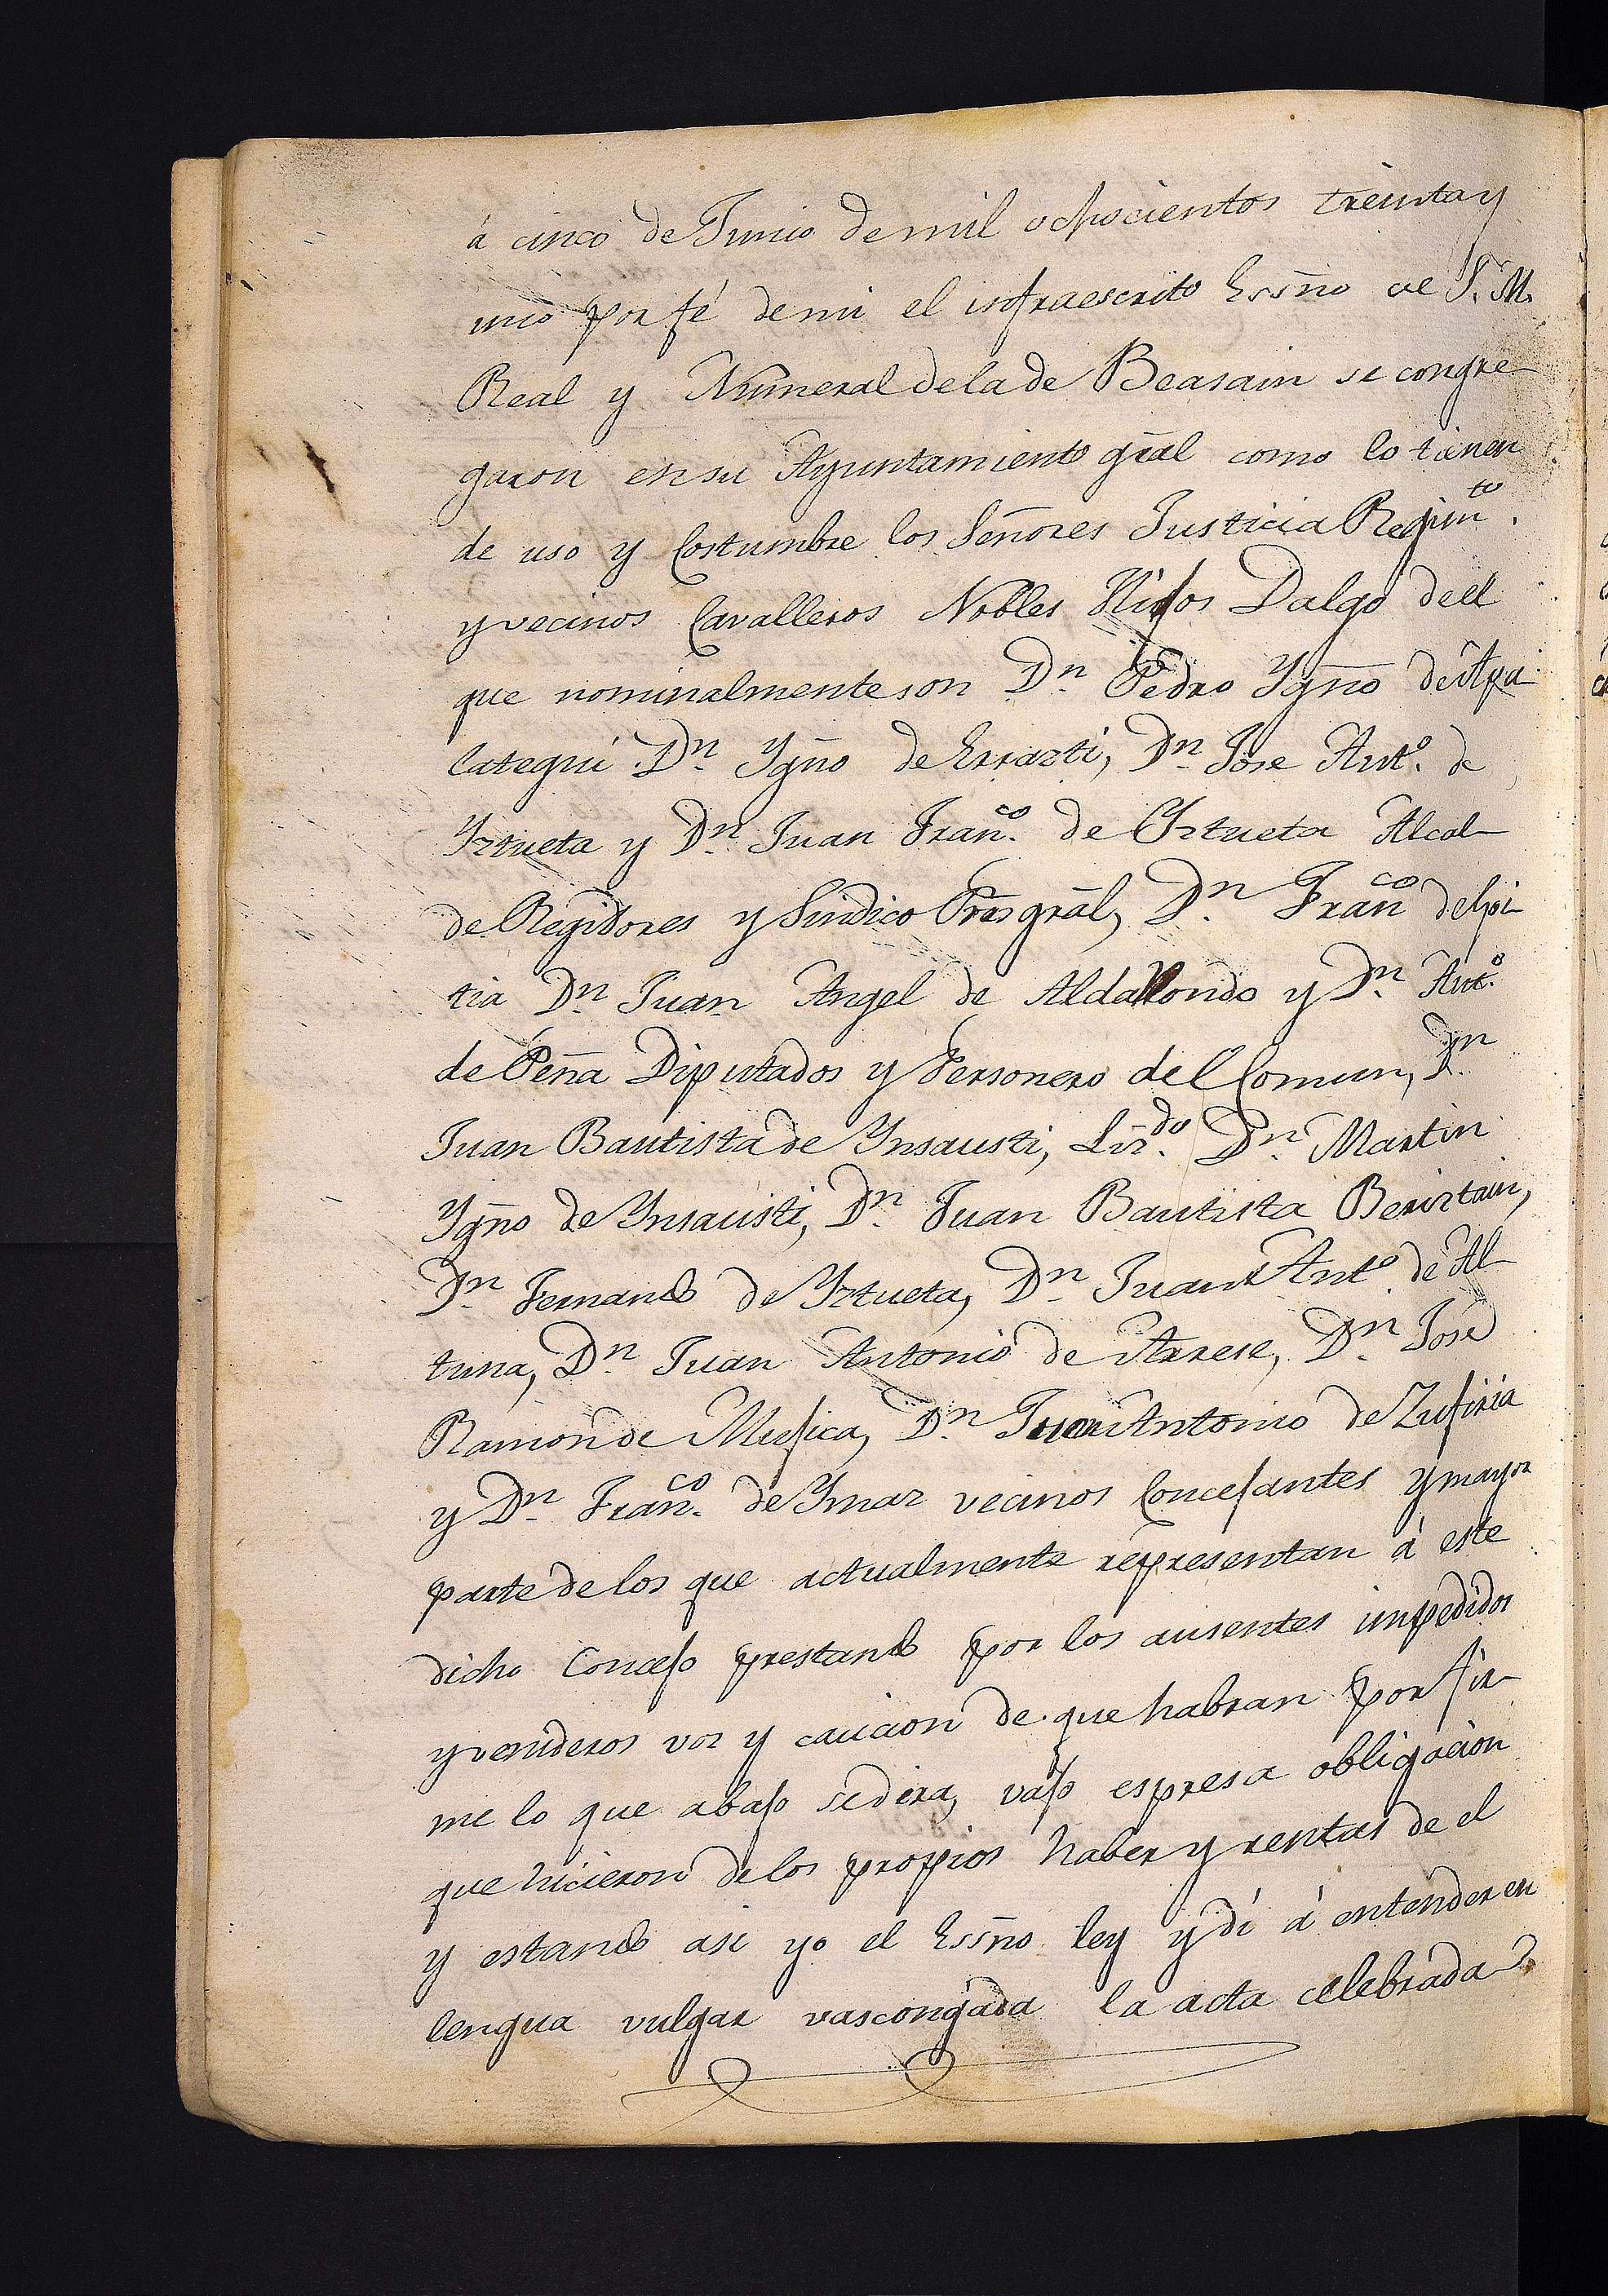 á cinco de Junio de mil ochocientos treinta y
uno por fé de mi el infraescrito Essño de S. M.
Real y Numeral de la de Beasain se congre-
garon en su Ayuntamiento gral como lo tienen
de uso y Costumbre los Señores Justicia Regim.to
y vecinos Cavalleros Nobles Hijos Dalgo de el
que nominalmente son Dn. Pedro Ygño de Apa-
lategui Dn. Ygño de Errazti, Dn. Jose Ant.o de
Yztueta y Dn. Juan Fran.co de Yztueta Alcal-
de Regidores y Sindico Prōr gral, Dn. Fran.co de Goi-
tia Dn. Juan Angel de Aldallondo y Dn. Ant.o
de Peña Diputados y Personero del Comun, Dn.
Juan Bautista de Ynsausti, Liz.do Dn. Martin
Ygño de Ynsausti, Dn. Juan Bautista Beriztain,
Dn. Fernando de Yztueta, Dn. Juan Ant.o de Al-
tuna, Dn. Juan Antonio de Arrese, Dn. José
Ramon de Mujica, Dn. Juan Antonio de Zufiria
y Dn. Fran.co de Ymaz vecinos Concejantes y mayor
parte de los que actualmente representan á este
dicho Concejo prestando por los ausentes impedidos
y venideros voz y caucion de que habran por fir-
me lo que abajo se dira, vajo espresa obligacion
que hicieron de los propios haber y rentas de el
y estando asi yo el Essño ley y dí á entender en
lengua vulgar vascongada la acta celebrada